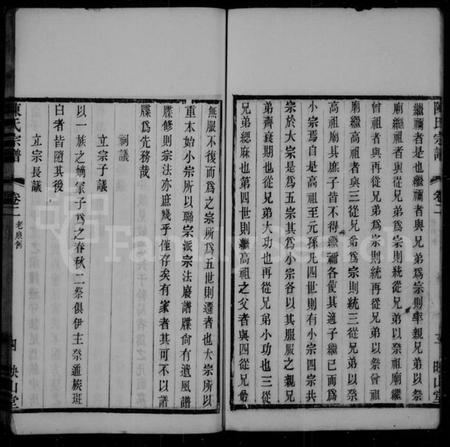 繼禰者是也繼禰者與兄弟爲宗則率親兄弟以祭
禰廟繼祖者與再從兄弟以祭祖廟繼
曾祖者與再從兄弟爲宗則統再從兄弟以祭曾祖
廟繼高祖者與三從兄弟爲宗則統三從兄弟以祭
高祖廟其庶子皆不得祭繼禰各使其適子繼而爲
小宗焉自是高祖至元孫凡四世則有小宗四宗共
宗於大宗是爲五宗其爲小宗各以其服服之親兄
弟齊衰期也大功也再從兄弟小功也三從
兄弟緦麻也第四世則繼高祖之父者與四從兄弟
陳氏宗譜
卷二
映山堂
無服不復而爲之宗所爲五世則遷者也大宗所以
百世不遷小宗所以聯宗派宗法廢譜牒尚有遺風譜
牒修則宗法亦庶幾乎僅存矣有家者其可不以譜
牒爲先務哉
祠議
立宗子議
以一族之嫡冢子爲之春秋二祭俱伊主祭通族班
白者皆隨其後
立宗長議
陳氏宗譜
卷二
老庶例
四
映山堂